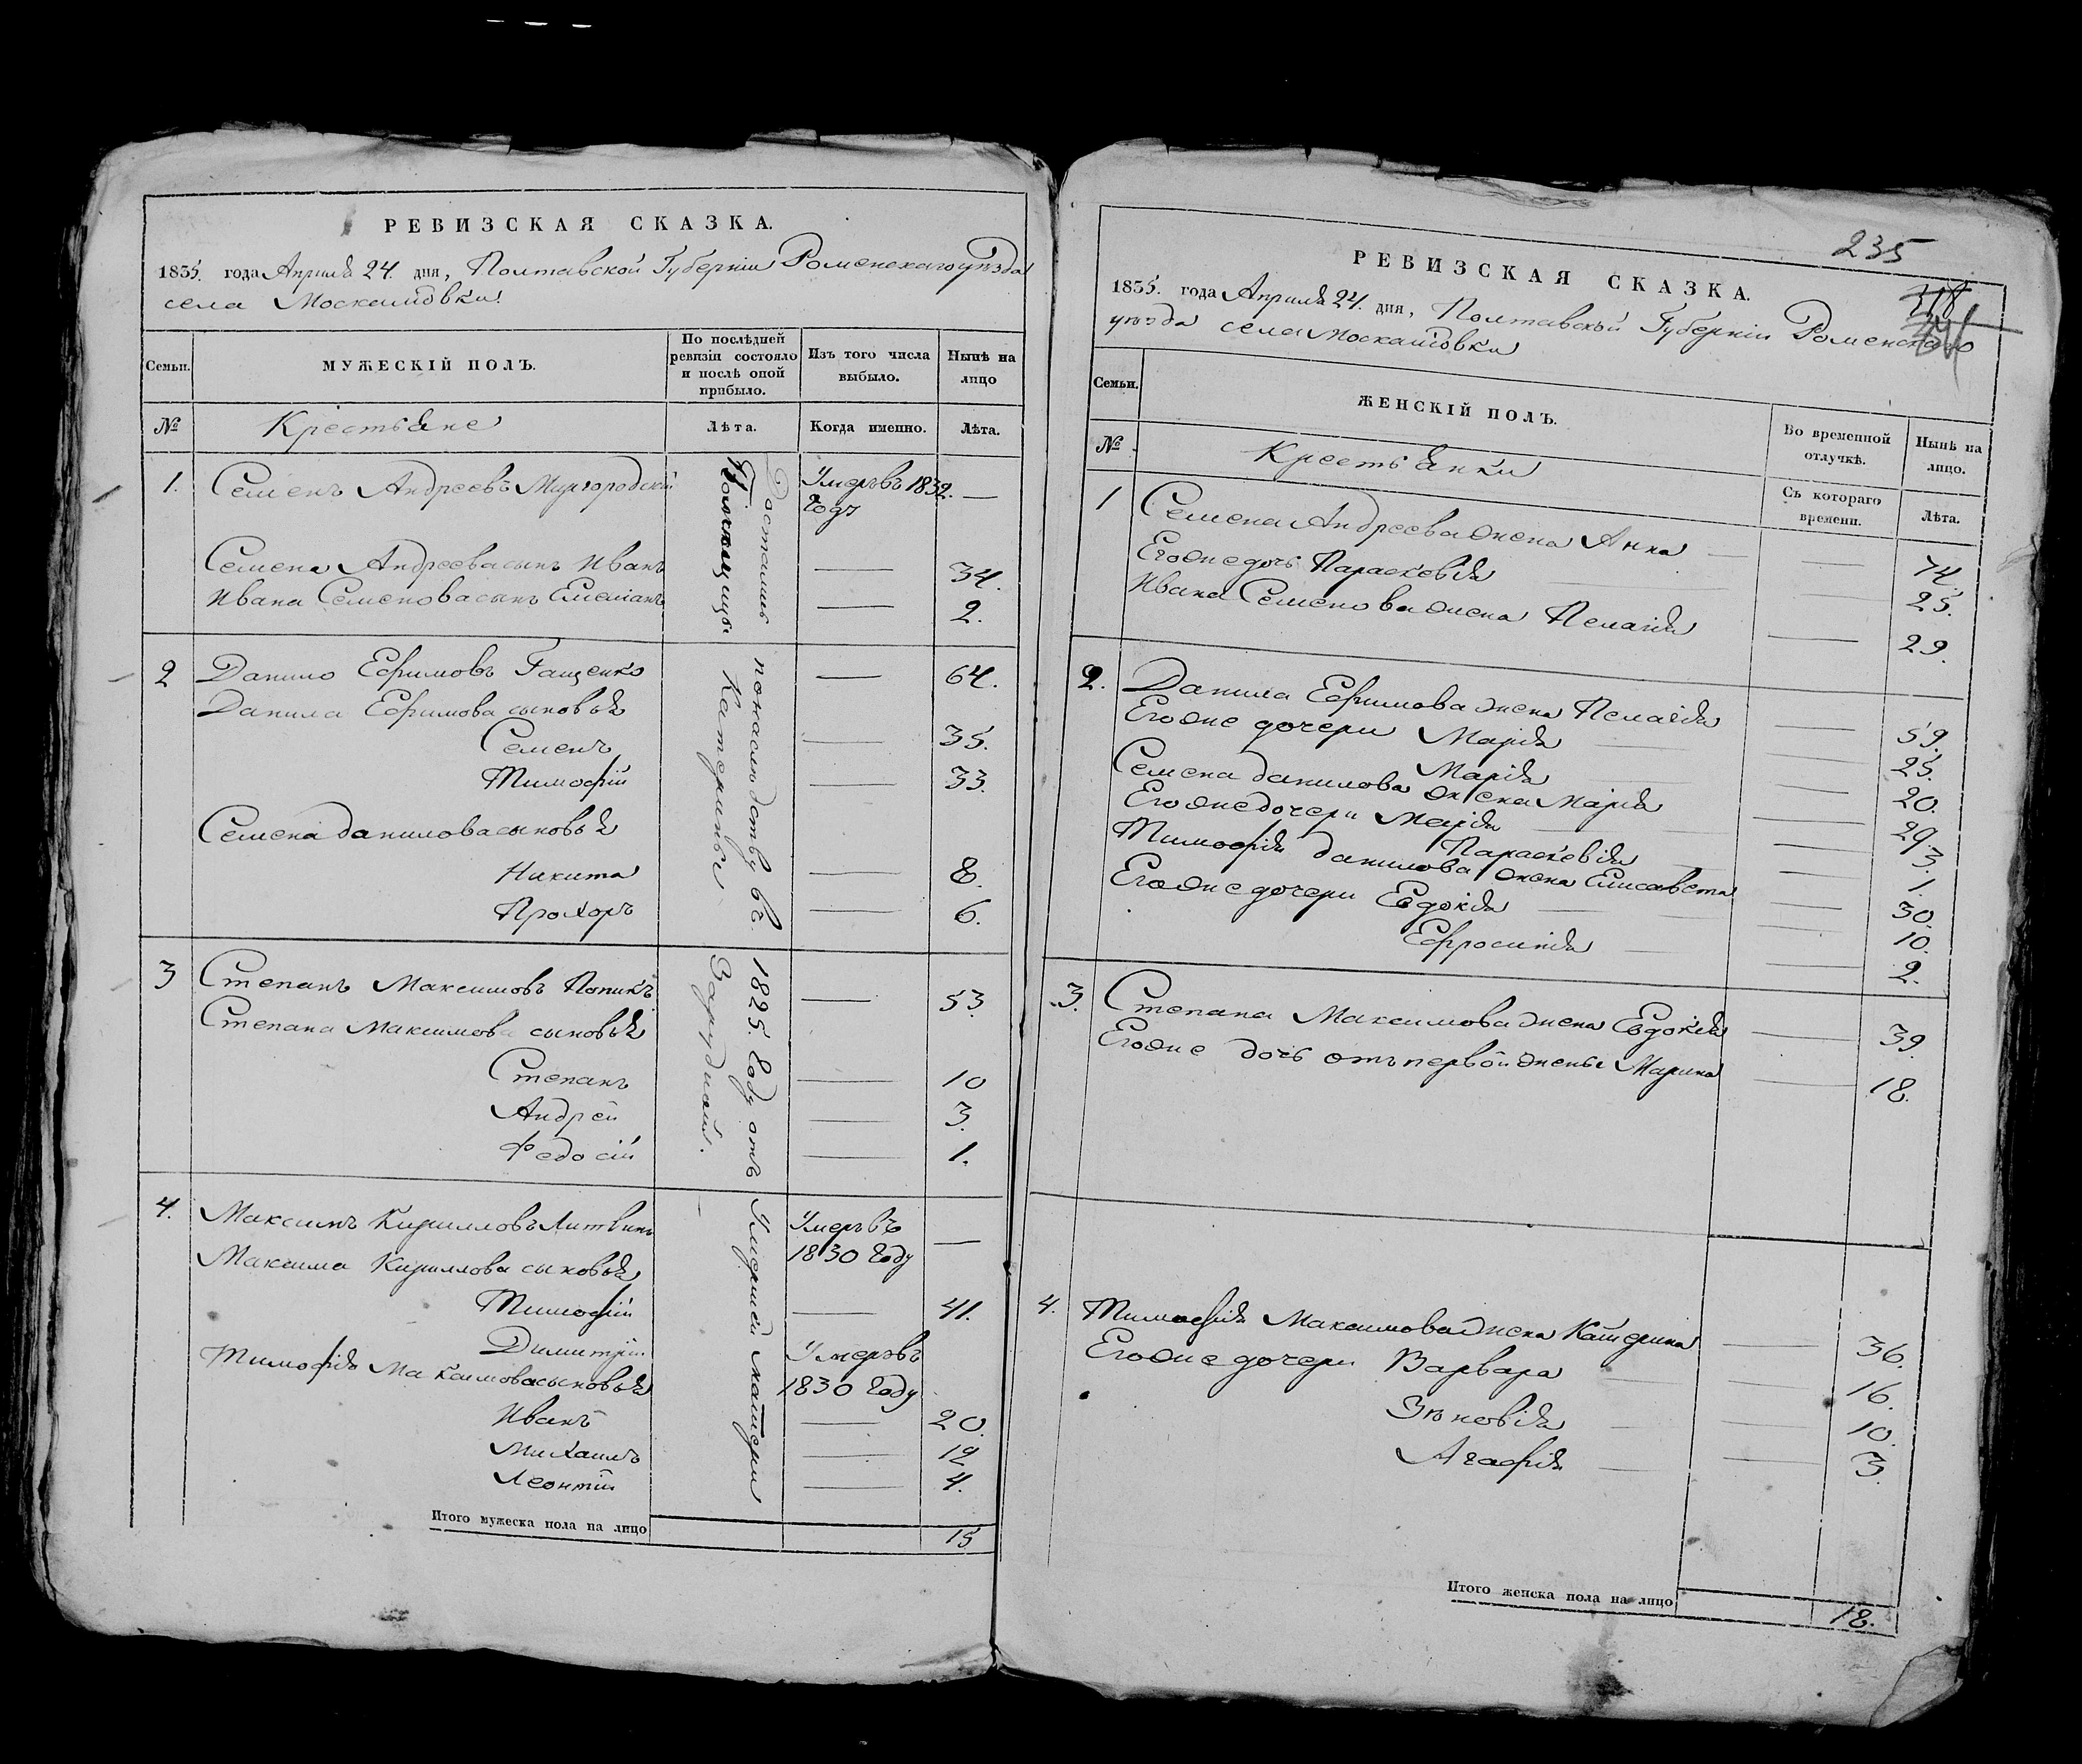 РЕВИЗСКАЯ СКАЗКА.
1835. года Апреля 24. дня, Полтавской Губерніи Роменскаго уѣзда
села Москалiовки.
Семьи.
МУЖЕСКІЙ ПОЛЪ.
По послѣдней ревизіи состояло и послѣ оной прибыло.
Изъ того числа выбыло.
Нынѣ на лицо
№
Крестьяне
Лѣта.
Когда именно.
Лѣта.
Достались
по наслѣдству въ
1825. году отъ
Умершей матери
Помѣщицы
Катерины
Зарудной.
1. Семенъ Андреевъ Миргородскій Умеръ въ 1832. —
Году
Семена Андреева сынъ Иванъ — 34.
Ивана Семенова сынъ Емеліанъ — 2.
2 Данило Ефимовъ Гащенко — 64.
Данила Ефимова сыновья
Семенъ — 35.
Тимофій — 33.
Семена данилова сыновья
Никита — 8.
Прохоръ — 6.
3 Степанъ Максимовъ Попикъ — 53.
Степана Максимова сыновья
Степанъ — 10
Андрей — 3.
Федосій — 1.
4. Максимъ Кирилловъ Литвинъ Умеръ въ
1830 Году —
Максима Кириллова сыновья
Тимофій — 41.
Димитрій Умеръ въ
1830 Году
Тимофія Максимова сыновья
Иванъ — 20.
Михаилъ — 12
Леонтій — 4.
Итого мужеска пола на лицо 15
235
РЕВИЗСКАЯ СКАЗКА.
1835. года Апреля 24. дня, Полтавской Губерніи Роменскаго
уѣзда села Москалiовки
Семьи.
ЖЕНСКІЙ ПОЛЪ.
Во временной отлучкѣ.
Нынѣ на лицо.
№
Крестьянки
Съ котораго времени.
Лѣта.
1 Семена Андреева жена Анна — 74.
Его же дочь Параскевія — 25.
Ивана Семенова жена Пелагія — 29.
2. Данила Ефимова жена Пелагія — 59.
Его же дочери Марія — 25.
Марія — 20.
Семена данилова жена Марія — 29.
Его же дочери Марія — 3.
Параскевія — 1.
Тимофія данилова жена Елисавета — 30.
Его же дочери Евдокія — 10.
Ефросинія — 2.
3. Степана Максимова жена Евдокія — 39.
Его же дочь отъ первой жены Марина — 18.
4. Тимофія Максимова жена Катерина — 36.
Его же дочери Варвара — 16.
Зѣновія — 10.
Агафія — 3.
Итого женска пола на лицо 18.